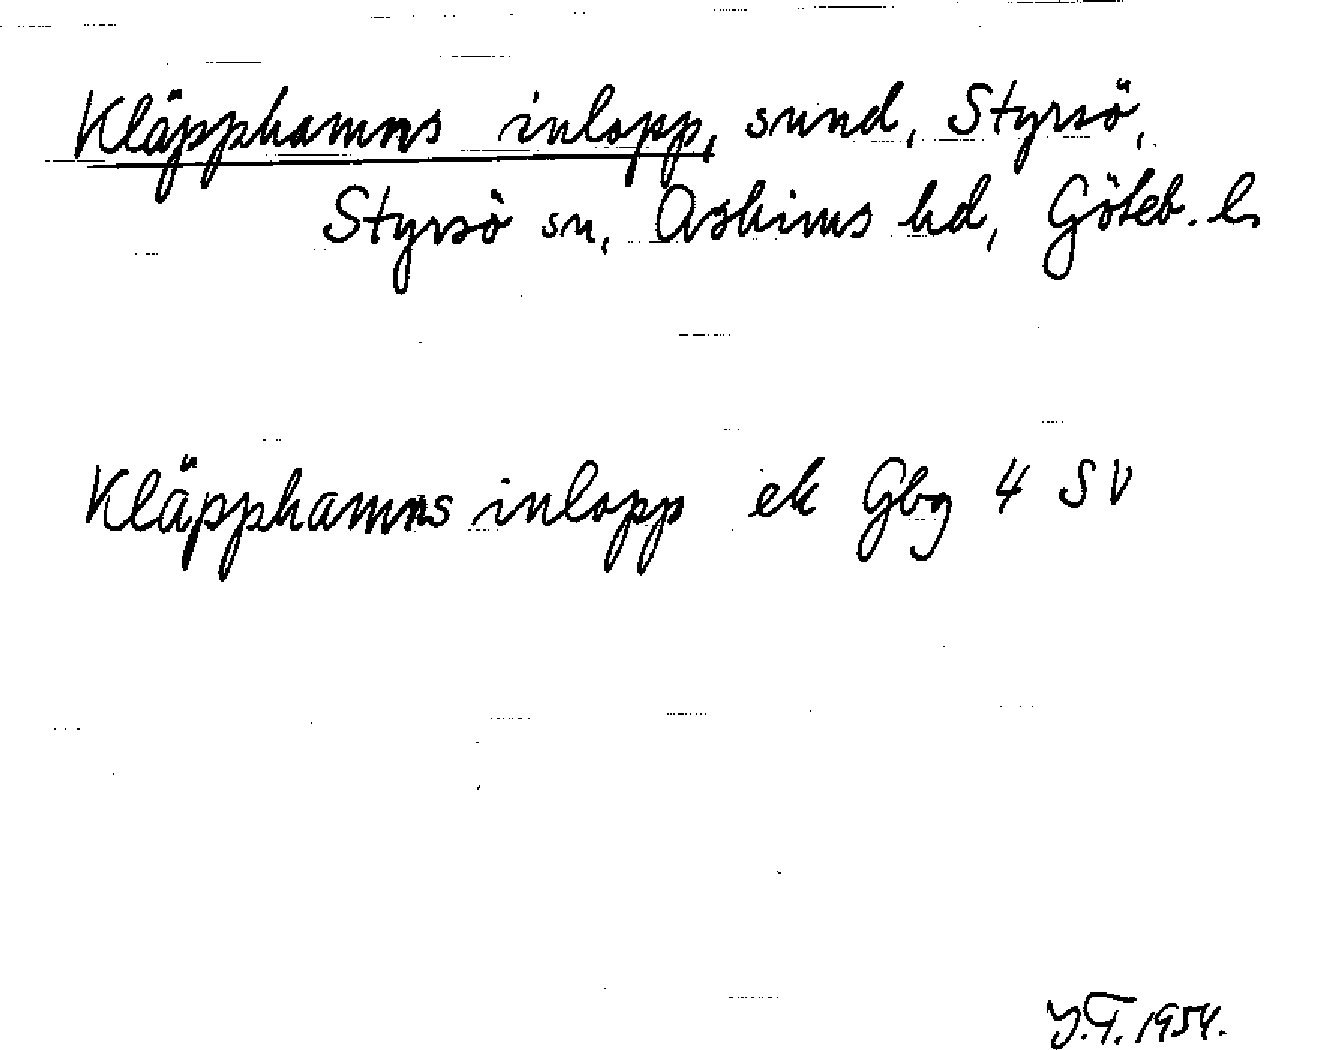 Kläpphamns inlopp, sund, Styrsö,
Styrsö sn, Askims hd, Göteb. l.
Kläpphamns inlopp ek Gbg 4 SV
Y.T. 1954.